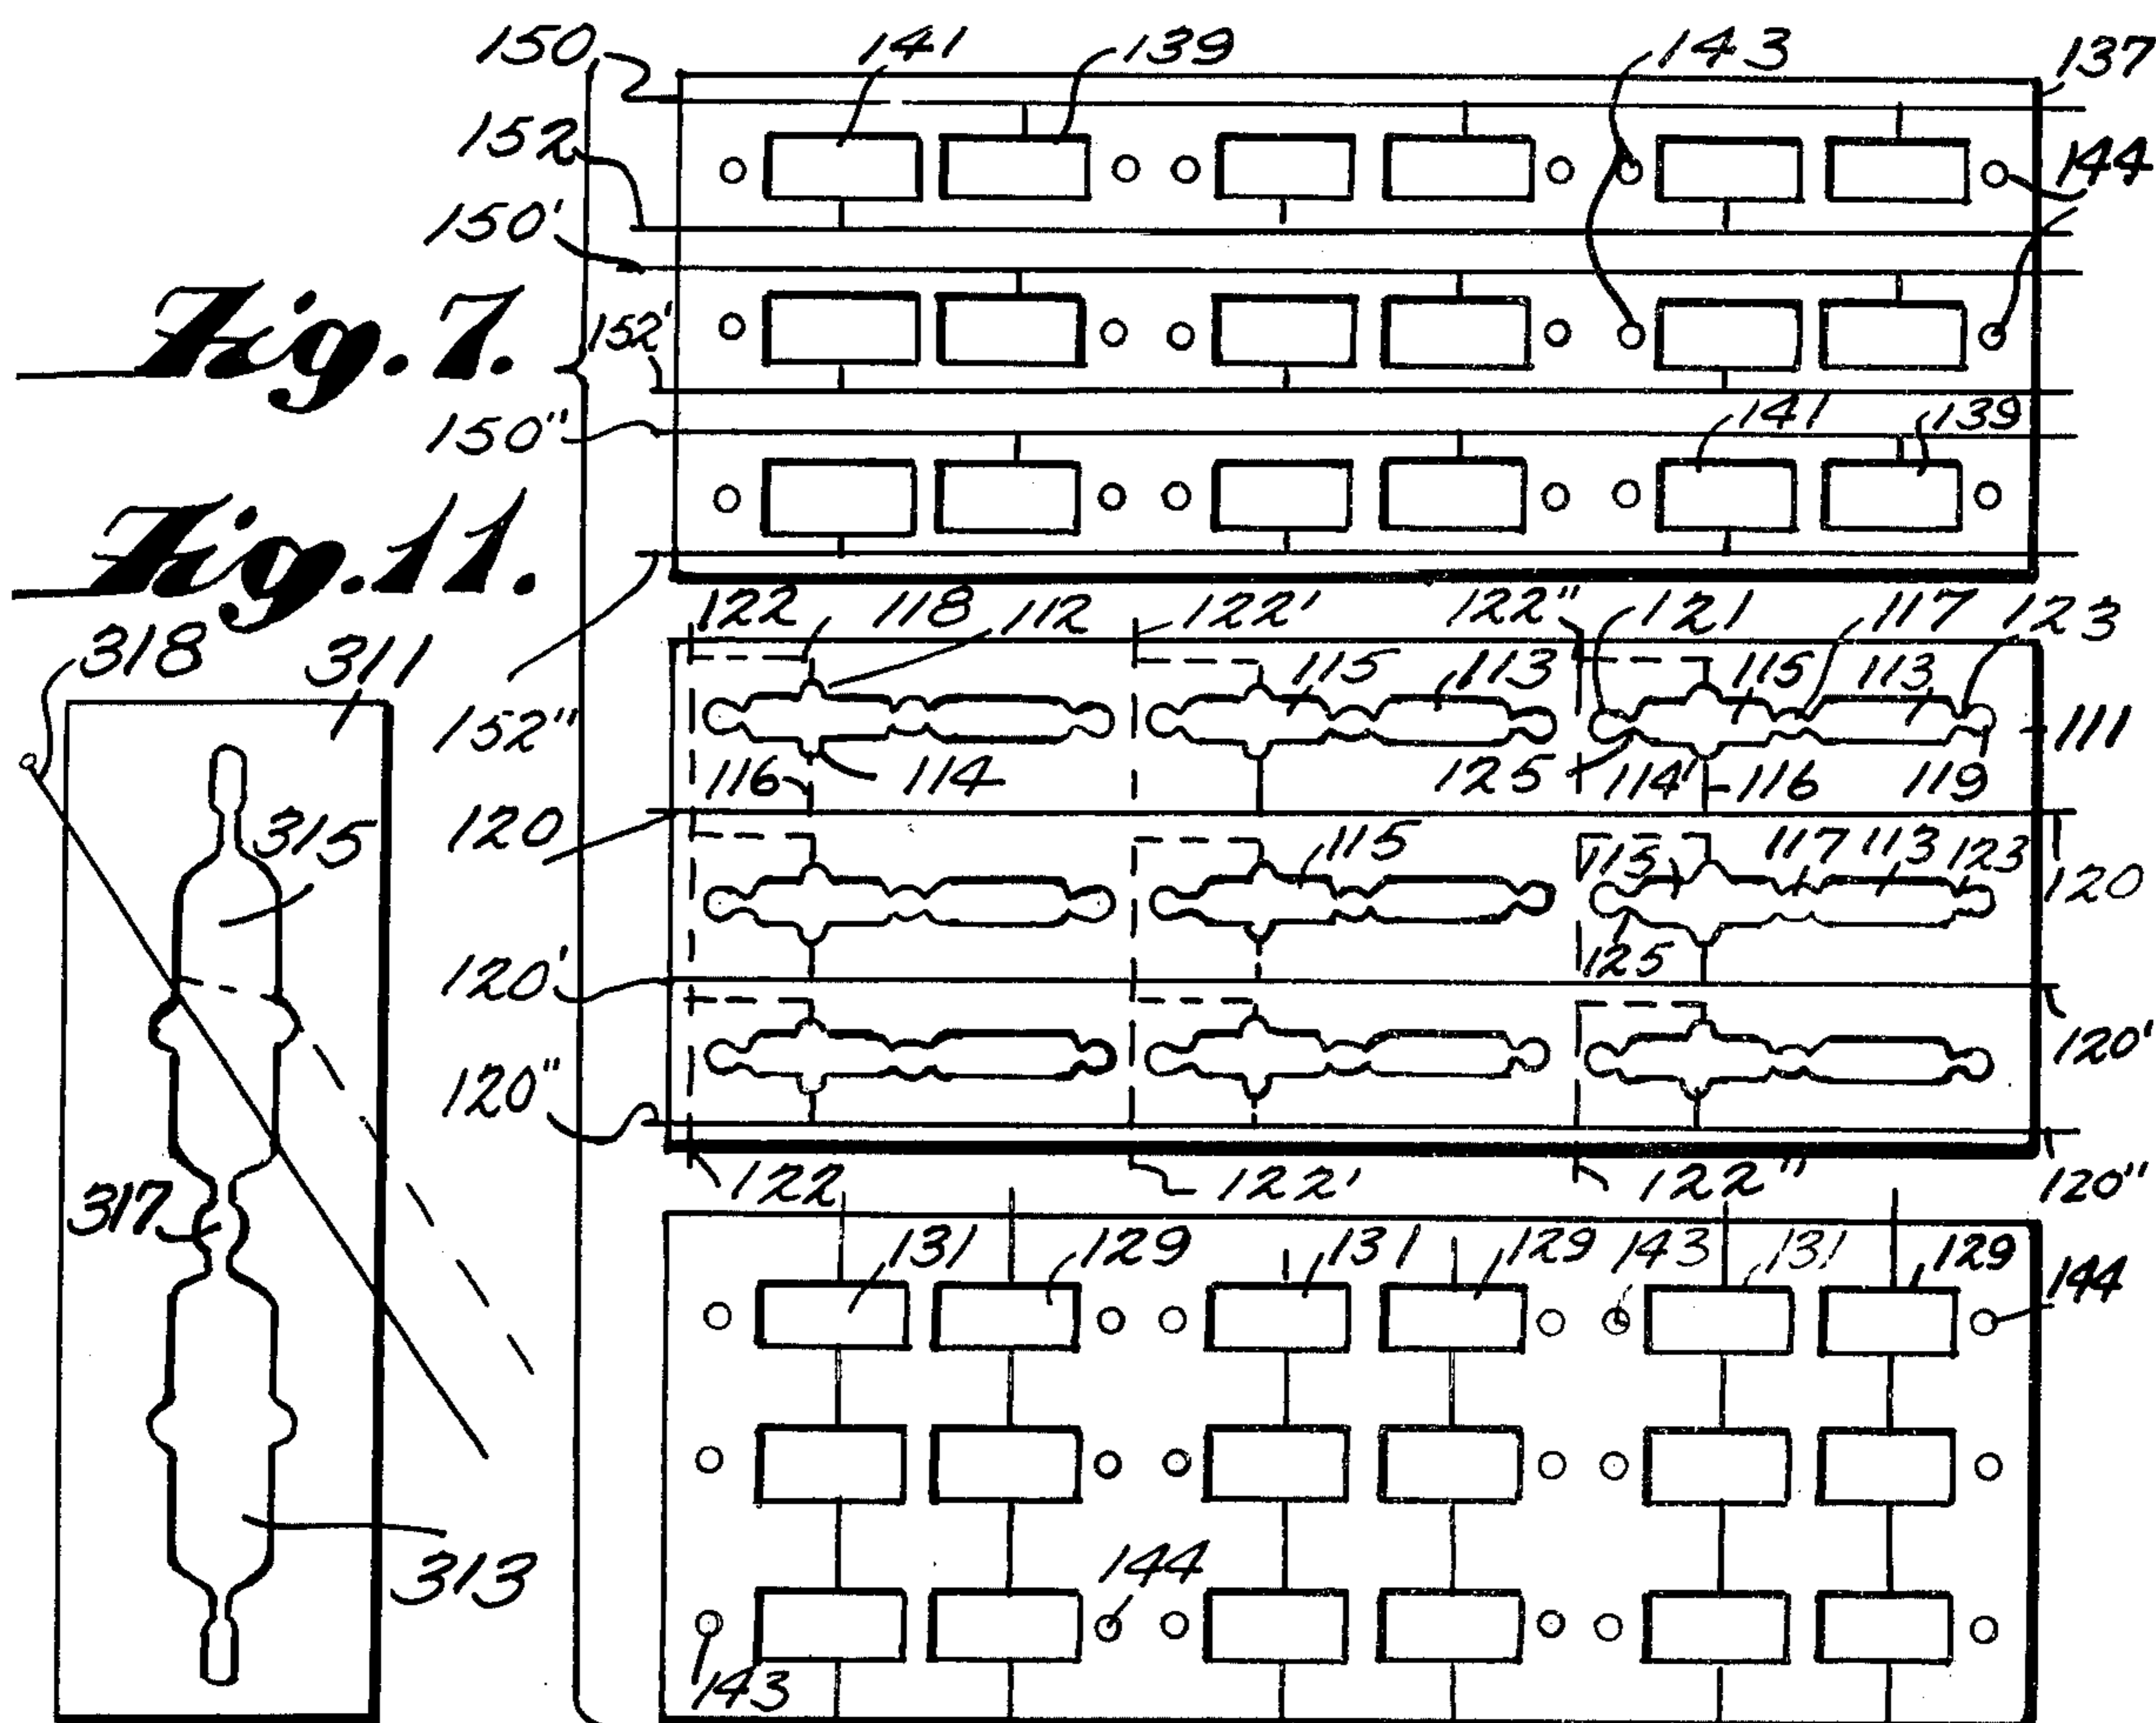 150 141 139 143 137
152 144
150'
Fig. 7.
152'
150" 141 139
Fig. 11.
122 118 112 122' 122" 121 117 123
318 311
115 113 115 113
152" 111
116 114 125 114' 116 119
120
315 115 115 117 113 123
120
125
120'
120'
120"
122 122' 122" 120"
317
131 129 131 129 143 131 129
144
144
313
143